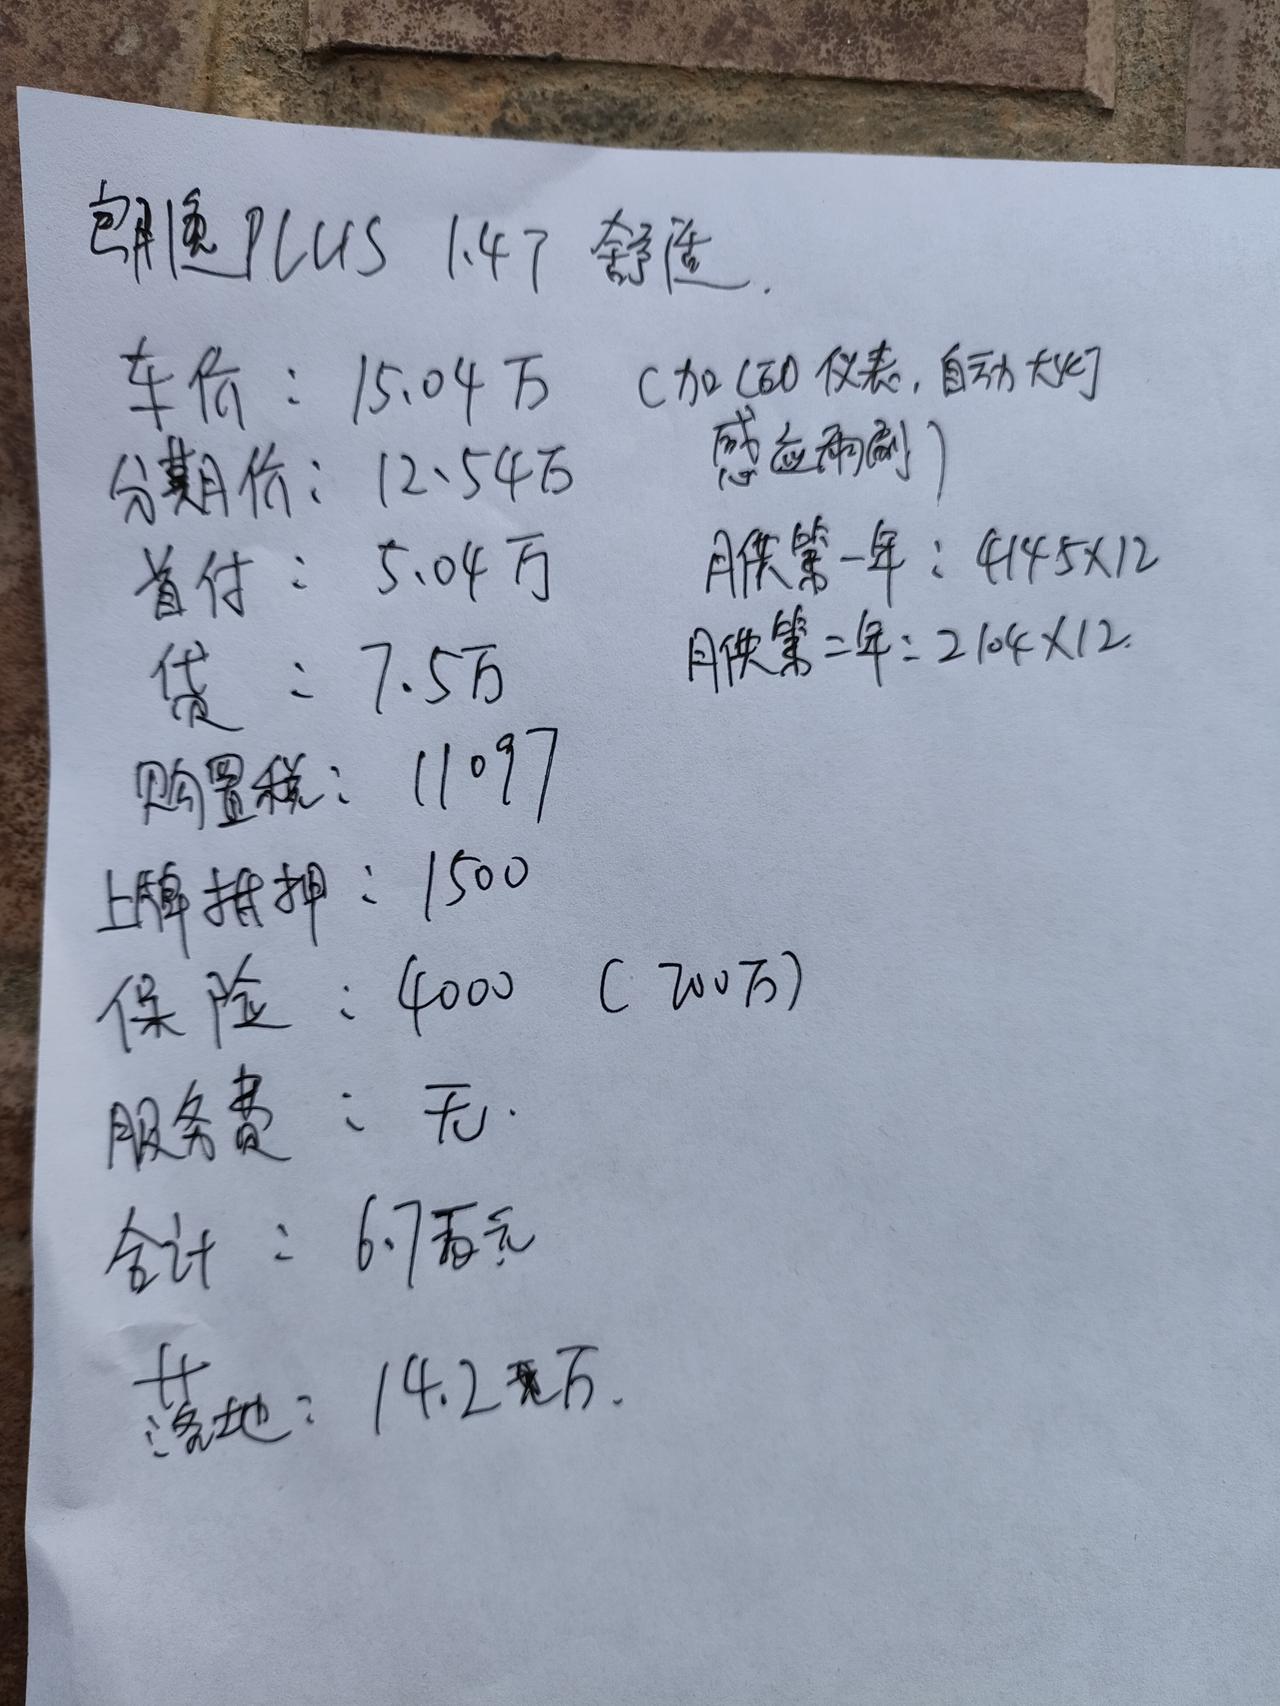 朗逸PLUS 1.4T 舒适.
车价: 15.04万 (加LED仪表, 自动大灯
感应雨刷)
分期价: 12.54万
首付: 5.04万
月供第一年: 4145×12
贷: 7.5万
月供第二年: 2104×12.
购置税: 11097
上牌抵押: 1500
保险: 4000 (200万)
服务费: 无.
合计: 6.7万元
落地: 14.2万.